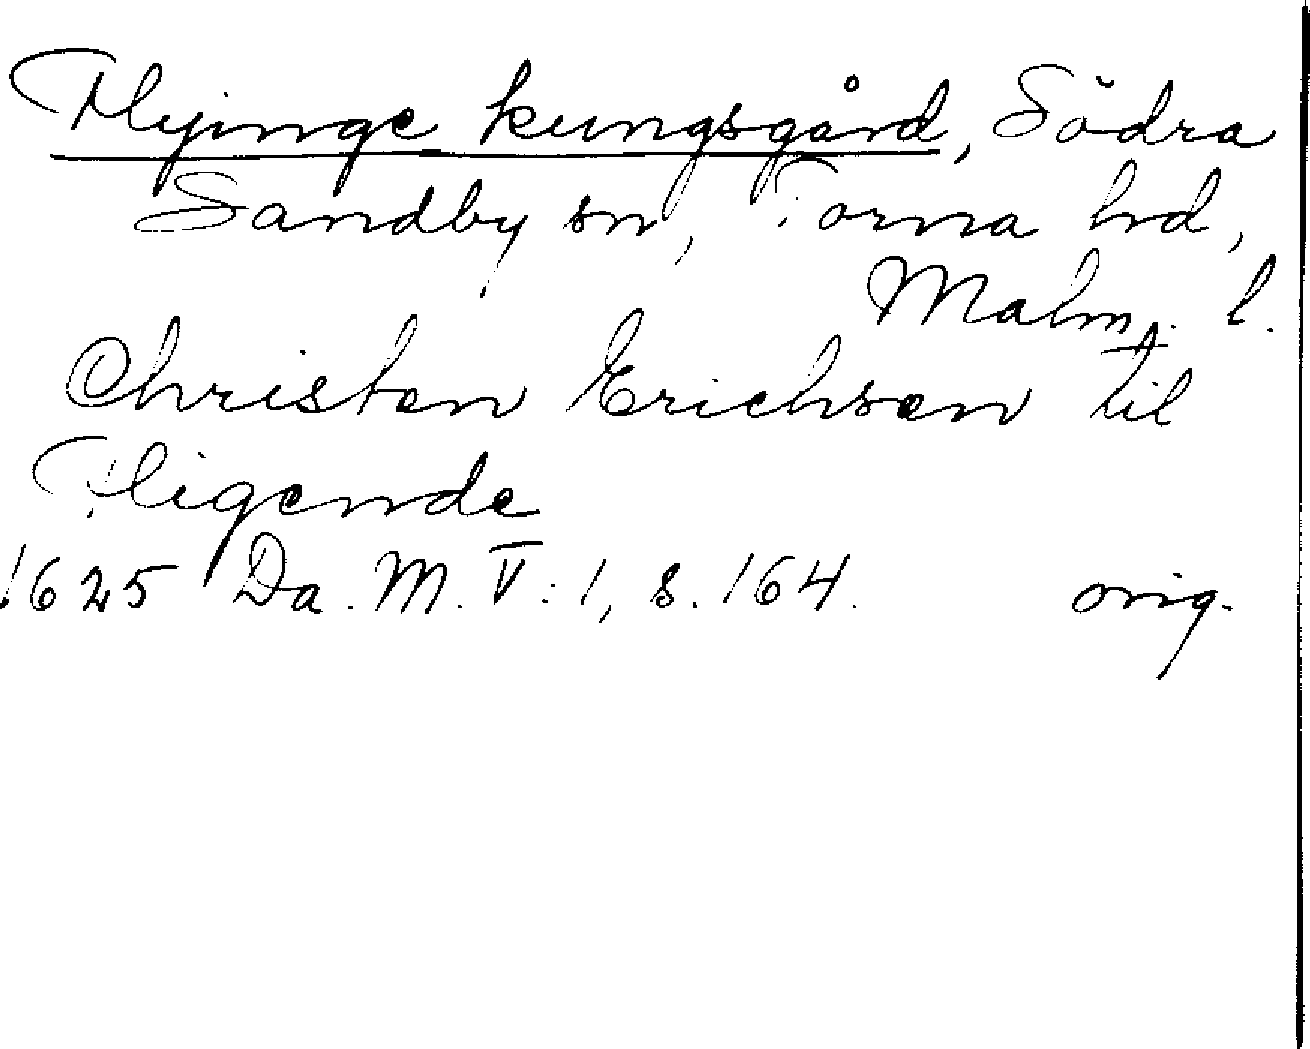 Flyinge kungsgård, Södra
Sandby sn, Torna hd,
Malm. l.
Christen Erichsen til
Fligende
1625 Da. M. V: 1, s. 164. orig.